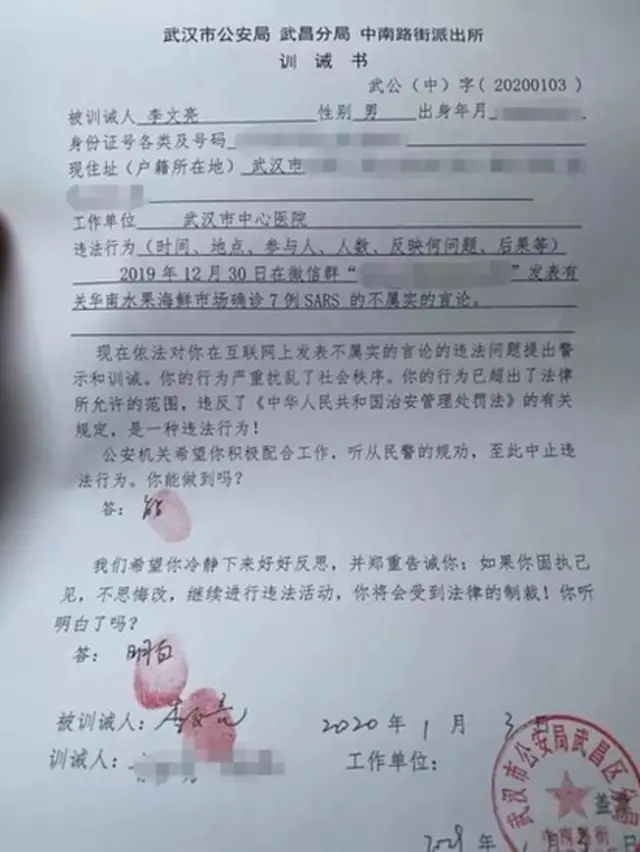 武汉市公安局 武昌分局 中南路街派出所
训 诫 书
武公（中）字（20200103）
被训诫人 李文亮 性别 男 出身年月
身份证号各类及号码
现住址（户籍所在地）武汉市
工作单位 武汉市中心医院
违法行为（时间、地点、参与人、人数、反映何问题、后果等）
2019年12月30日在微信群“ ”发表有
关华南水果海鲜市场确诊7例SARS的不属实的言论。
现在依法对你在互联网上发表不属实的言论的违法问题提出警
示和训诫。你的行为严重扰乱了社会秩序。你的行为已超出了法律
所允许的范围，违反了《中华人民共和国治安管理处罚法》的有关
规定，是一种违法行为！
公安机关希望你积极配合工作，听从民警的规劝，至此中止违
法行为。你能做到吗？
答：能
我们希望你冷静下来好好反思，并郑重告诫你：如果你固执己
见，不思悔改，继续进行违法活动，你将会受到法律的制裁！你听
明白了吗？
答：明白
被训诫人：李文亮 2020年1月3日
训诫人： 工作单位：
武汉市公安局武昌区分局
盖章
中南路街
年1月3